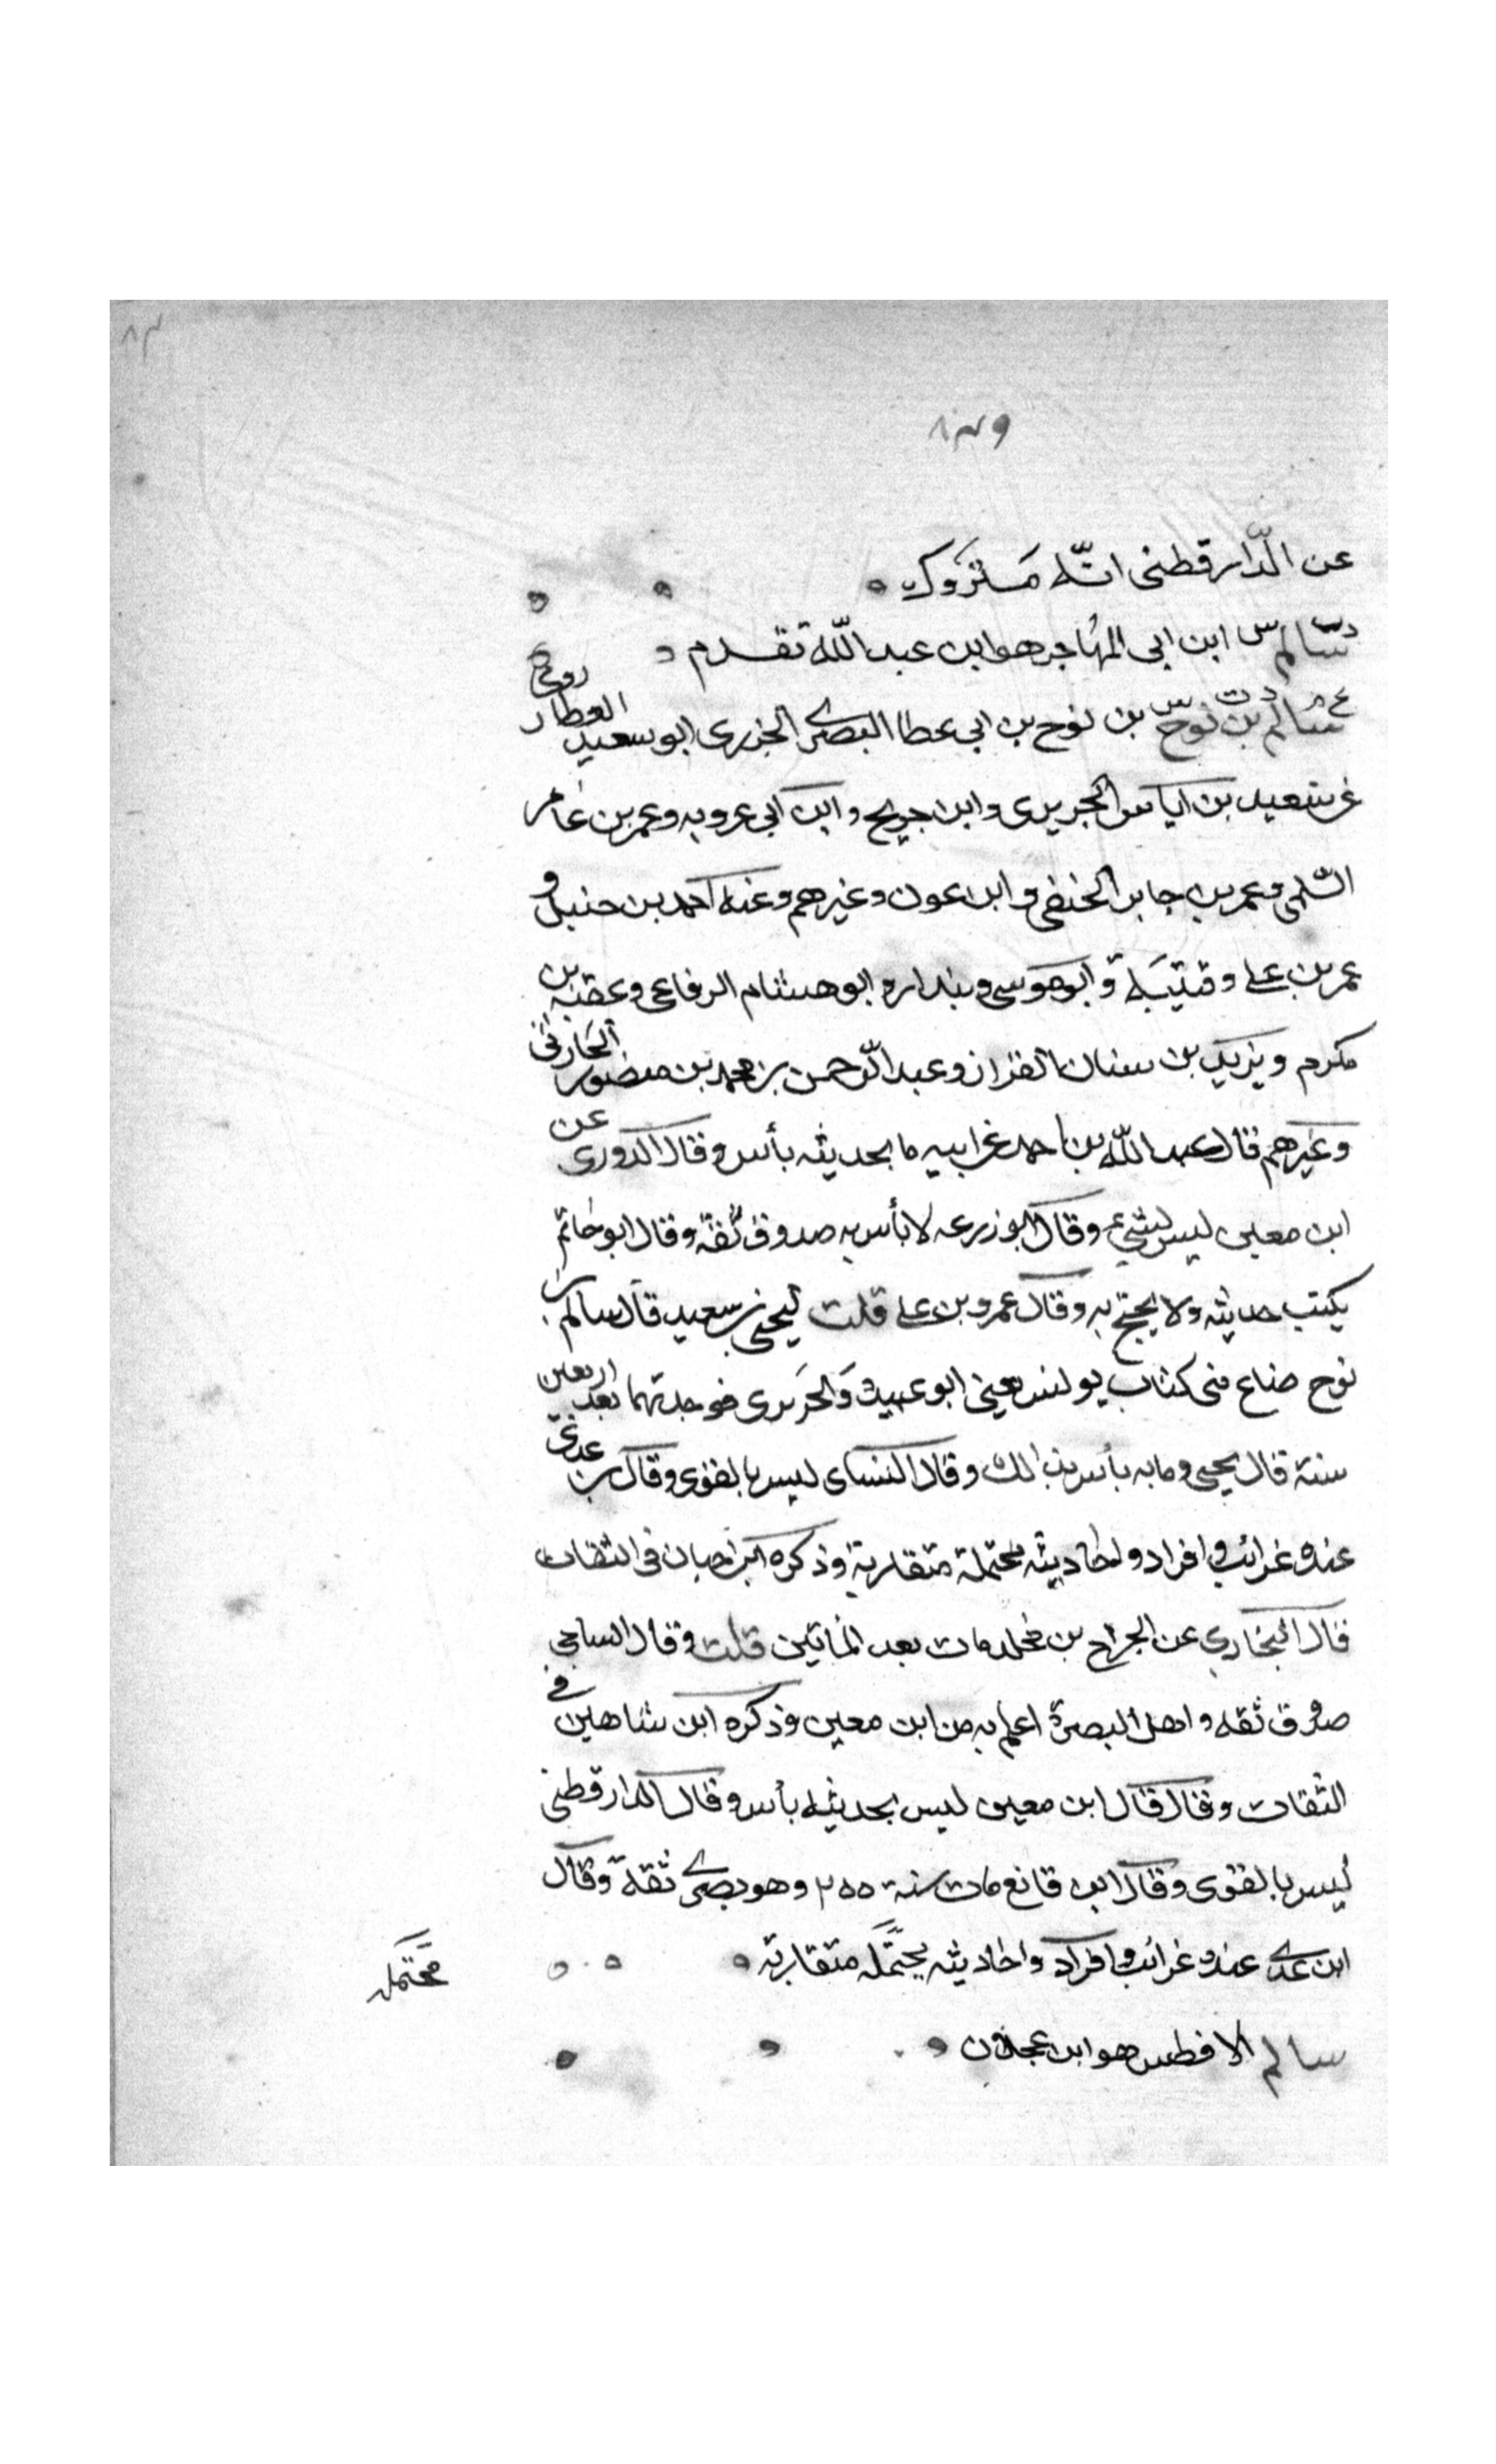 ٨٣
٨٣٩
عن الدّارقطنى انّه مَتروك
سالم ابن ابى المهاجر هو ابن عبد اللّه تقدم
سالم بن نوح بن نوح بن ابى عطا البصرى الجزرى ابو سعيد العطار روى
عن سعيد بن اياس الجريرى وابن جريج وابن ابى عروبه وعمر بن عامر
السّلمى وعمر بن جابر الحنفى وابن عون وغيرهم وعنه احمد بن حنبل و
عمر بن على وقتيبَة وابو موسى وبندار وابو هشام الرفاعى وعقبه بن
مكرم ويزيد بن سنان القزاز وعبد الرّحمن بن محمد بن منصور الحارثى
وغيرهم قال عبد اللّه بن احمد عن ابيه ما بحديثه بأس وقال الدورى عن
ابن معين ليس بشيء وقال ابو زرعه لا بأس به صدوق ثقة وقال ابو حاتم
يكتب حديثه ولا يحتج به وقال عمرو بن على قلت ليحيى بن سعيد قال سالم بن
نوح ضاع منى كتاب يونس يعنى ابو عبيد وَالجريرى فوجدتهما بعد اربعين
سنة قال يحيى وما به بأس بذلك وقال النساى ليس بالقوى وقال بن عدى
عنده غرائب وافراد واحاديثه محتملة متقاربة وذكره ابن حبان فى الثقات
قال البخارى عن الجراح بن مخلد مات بعد الماتين قلت وقال الساجى
صدوق ثقه واهل البصرة اعلم به من ابن معين وذكره ابن شاهين فى
الثقات وقال قال ابن معين ليس بحديثه بأس وقال الدارقطنى
ليس بالقوى وقال ابن قانع مات سنة ٢٥٥ وهو بصرى ثقة وقال
ابن عدى عنده غرائب وافراد واحاديثه يحتمله متقاربة
محتمله
سالم الافطس هو ابن عجلان